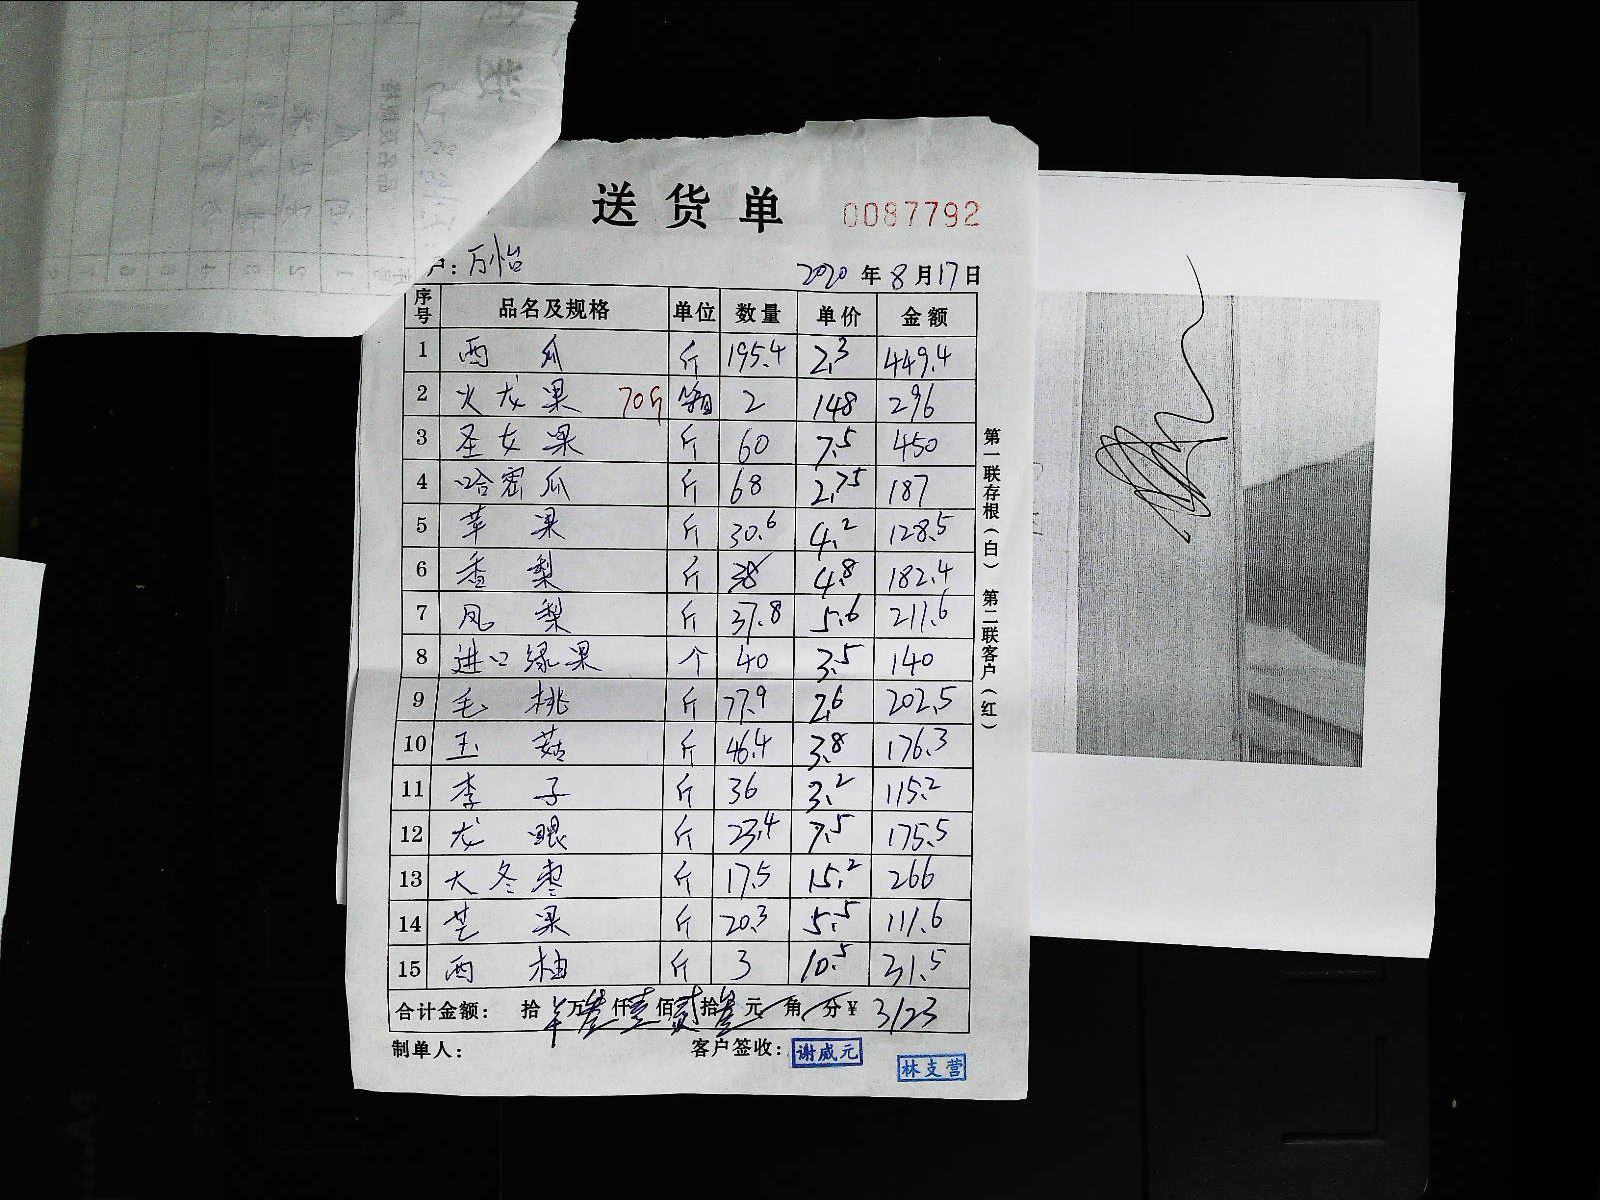 送货单 0087792
户：万怡 2020年8月17日
序号 品名及规格 单位 数量 单价 金额
1 西瓜 斤 195.4 2.3 449.4
2 火龙果 70斤 箱 2 148 296
3 圣女果 斤 60 7.5 450
4 哈密瓜 斤 68 2.75 187
5 苹果 斤 30.6 4.2 128.5
6 香梨 斤 38 4.8 182.4
7 凤梨 斤 37.8 5.6 211.6
8 进口绿果 个 40 3.5 140
9 毛桃 斤 77.9 2.6 202.5
10 玉菇 斤 46.4 3.8 176.3
11 李子 斤 36 3.2 115.2
12 龙眼 斤 23.4 7.5 175.5
13 大冬枣 斤 17.5 15.2 266
14 芒果 斤 20.3 5.5 111.6
15 西柚 斤 3 10.5 31.5
合计金额： 拾 万叁仟壹佰贰拾叁元 角 分￥ 3123
制单人： 客户签收： 谢威元
林支营
第一联存根（白） 第二联客户（红）